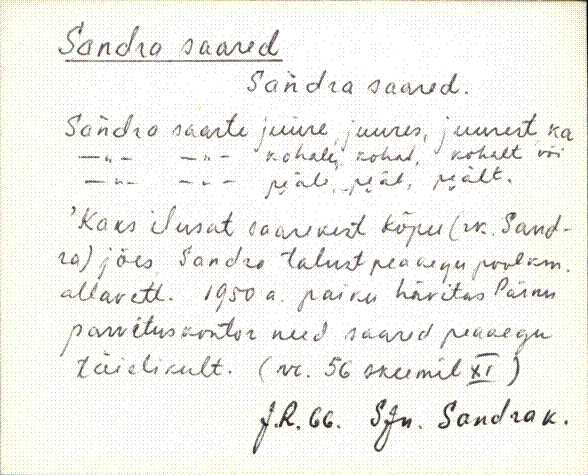 Sandra saared
Sańdra saared.
Sańdra saarte juure, juures, juurest ka
—„— —„— kohale, kohal, kohalt või
—„— —„— pęäle, pęäl, pęält.
'Kaks ilusat saarekest Kõpu (rk. Sand-
ra) jões Sandra talust peaaegu poolkm.
allavett. 1950 a. paiku hävitas Pärnu
parvetuskontor need saared peaaegu
täielikult. (vt. 56 skeemil XI)
J.R. 66. SJn. Sandra k.